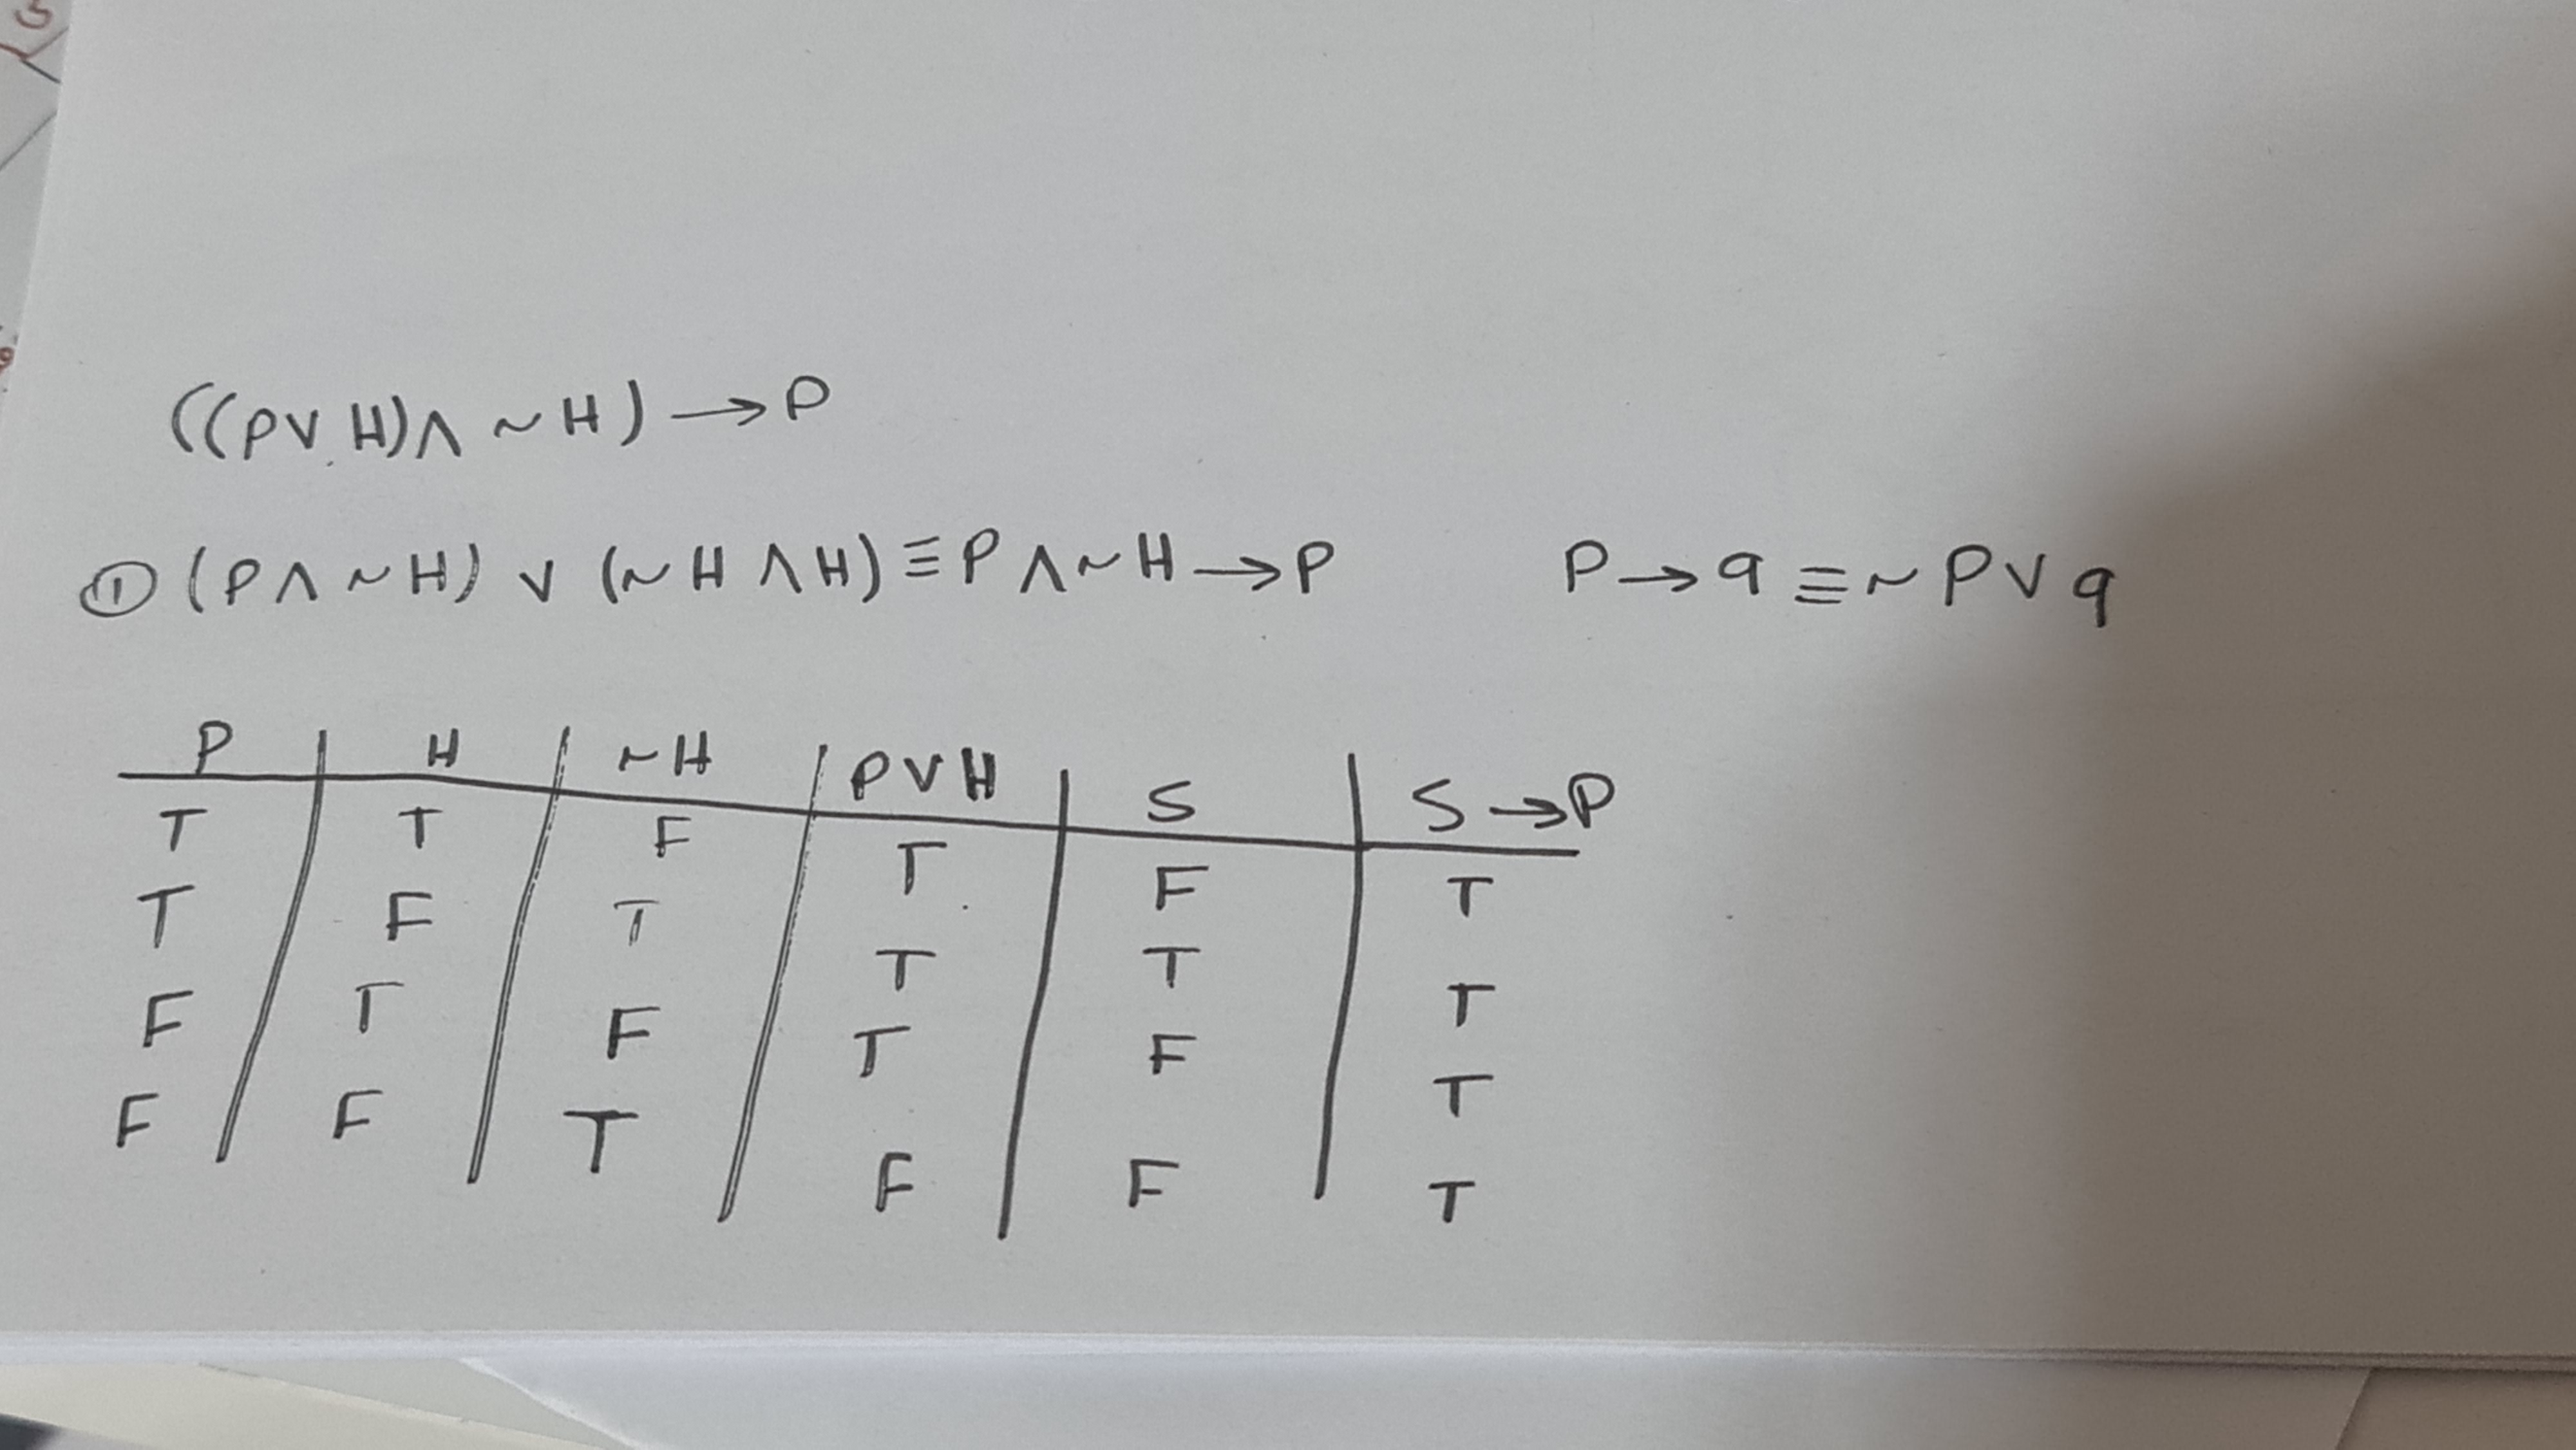 ((P∨H)∧ ~H) → P
① (P∧ ~H) ∨ (~H∧H) ≡ P∧~H → P P → q ≡ ~P∨q
P H ~H P∨H S S → P
T T F T F T
T F T T T T
F T F T F T
F F T F F T